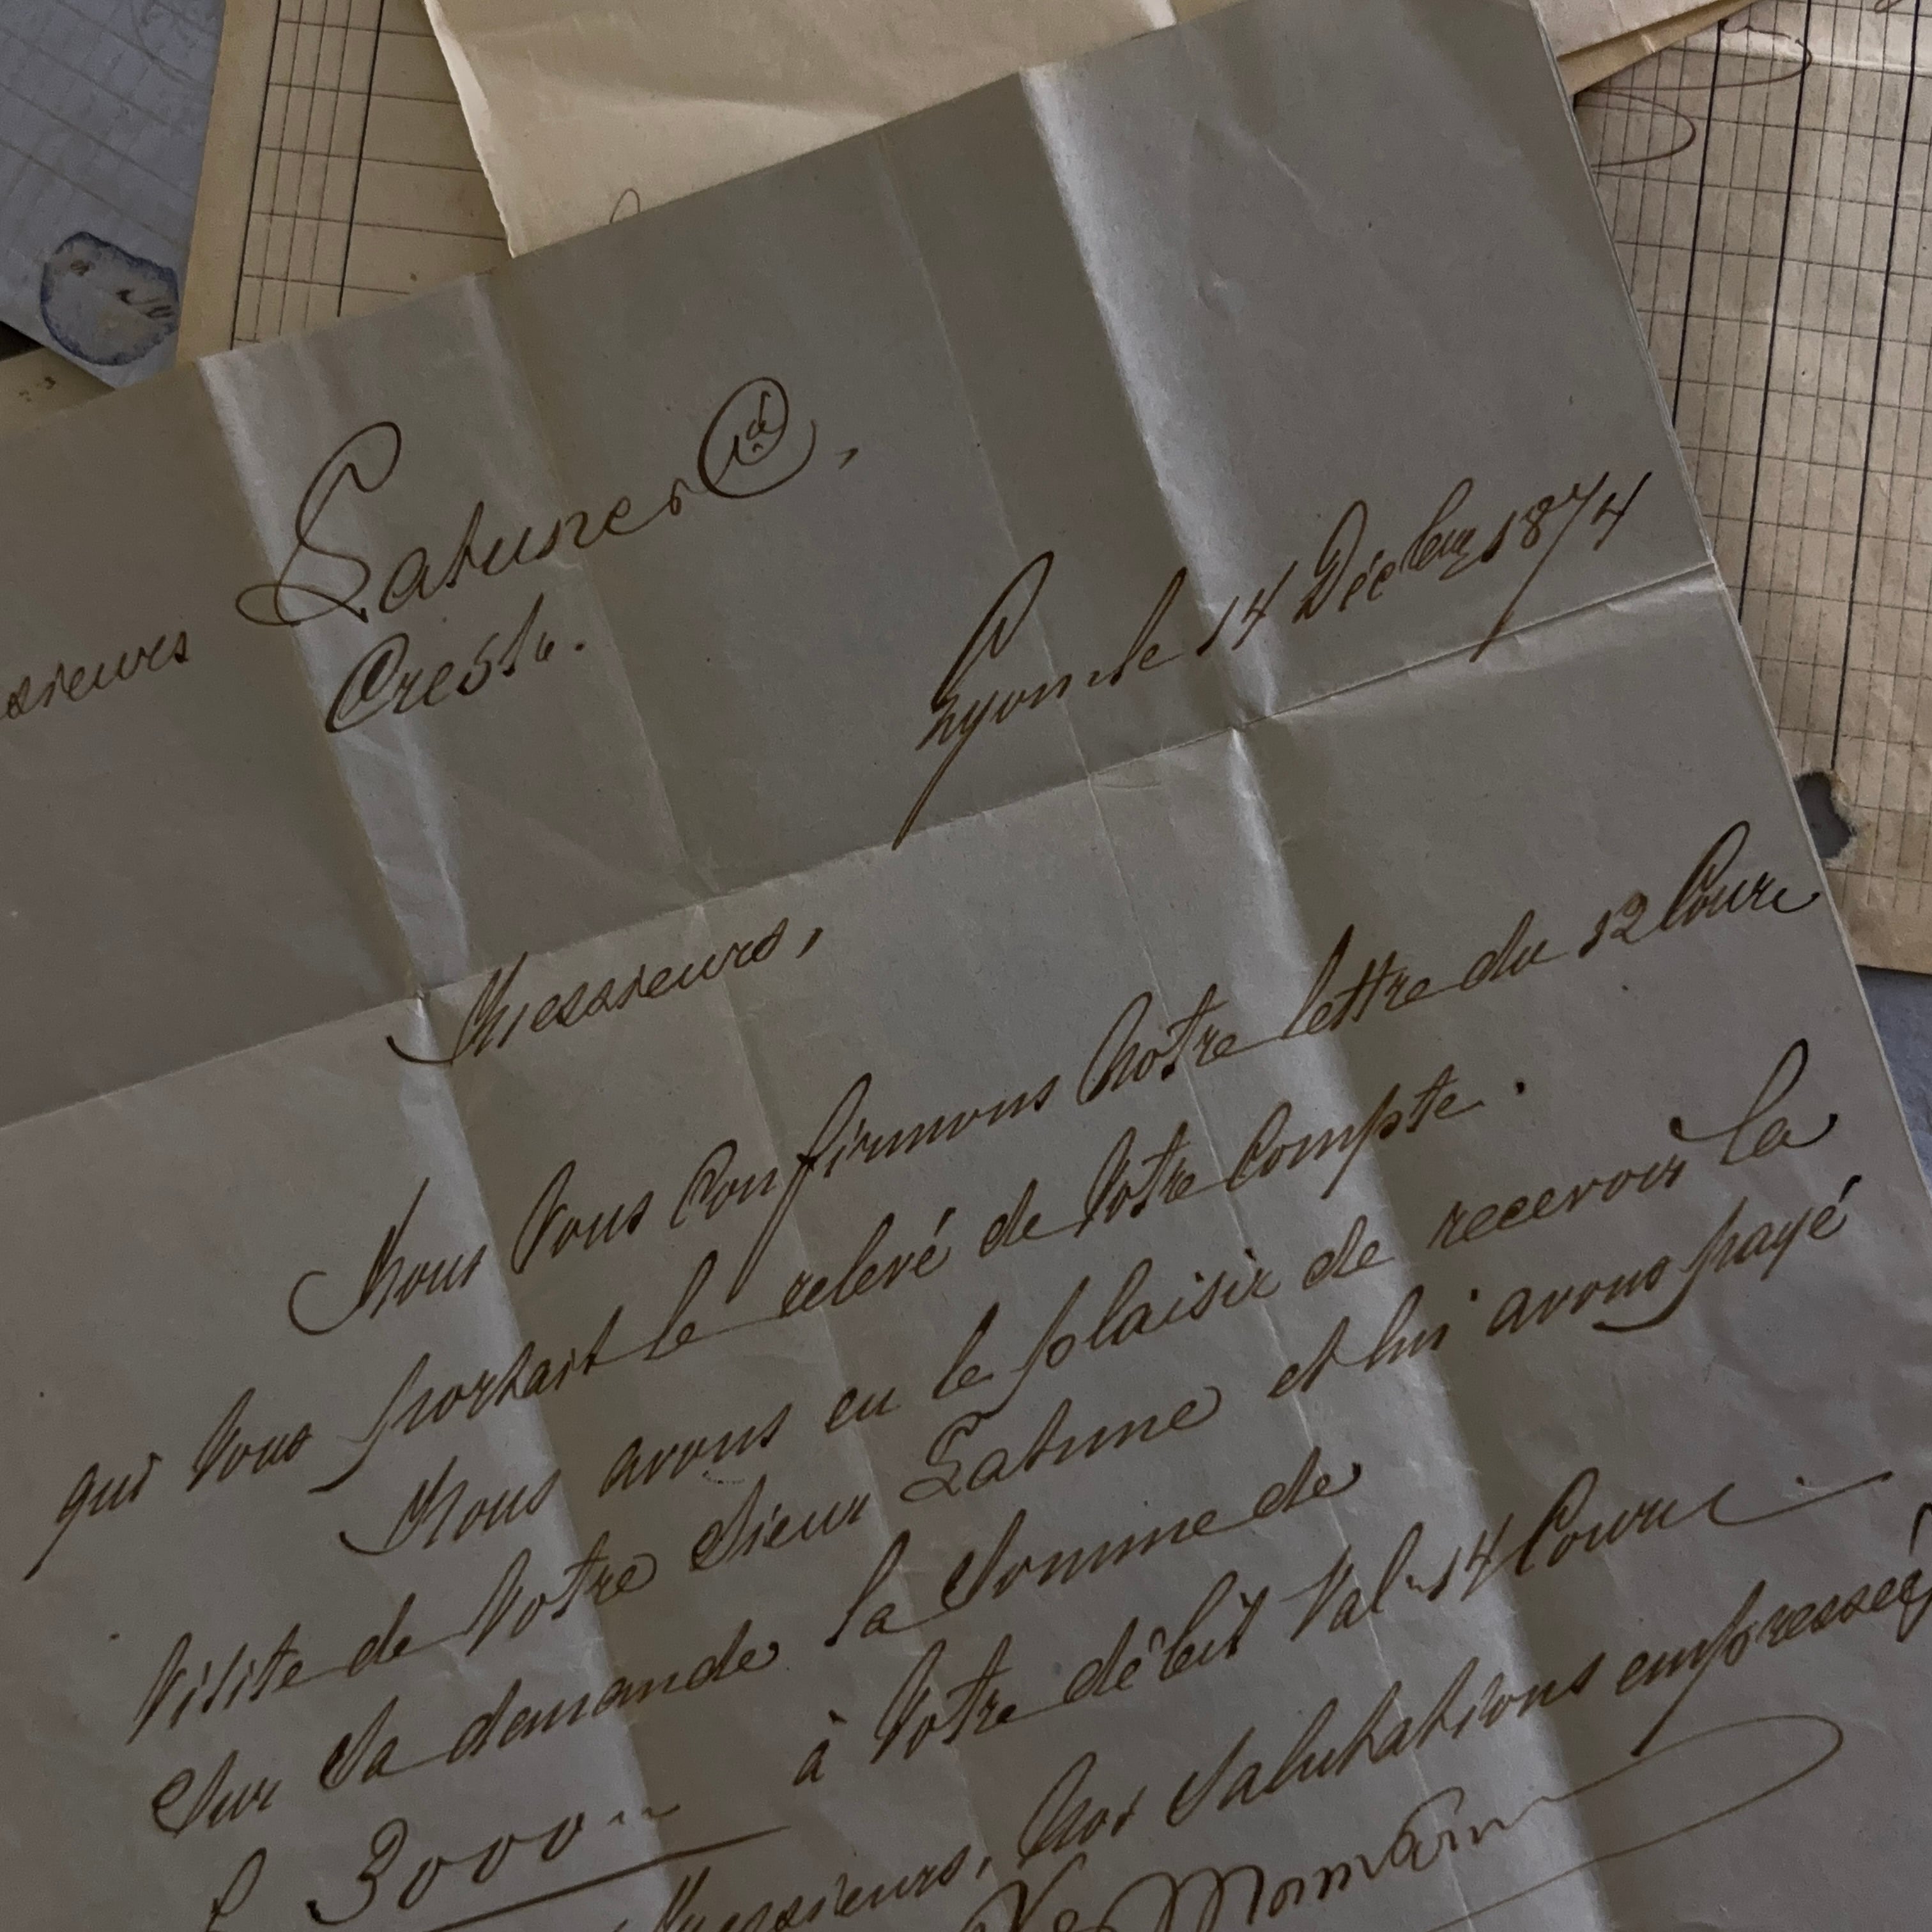 Messieurs Latune & Cie,
Crest.
Lyon le 14 Décbre 1874
Messieurs,
Nous Vous Confirmons Notre lettre du 12 Courc
qui Vous portait le relevé de Votre Compte.
Nous avons eu le plaisir de recevoir la
Visite de Votre Sieur Latune et lui avons payé
Sur Sa demande la Somme de
f 3000 -- à Votre débit Val. 14 Courc
Messieurs, Nos Salutations empressées